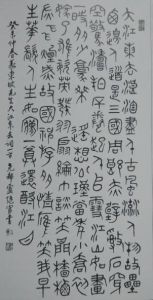 大江東去浪淘盡千古風流人物故壘
西邊人道是三國周郎赤壁亂石穿
空驚濤拍岸捲起千堆雪江山如畫
一時多少豪傑遙想公瑾當年小喬初
嫁了雄姿英發羽扇綸巾談笑間檣櫓
灰飛煙滅故國神遊多情應笑我早
生華髮人生如夢一尊還酹江月
癸未仲春東坡先生大江東去詞一首